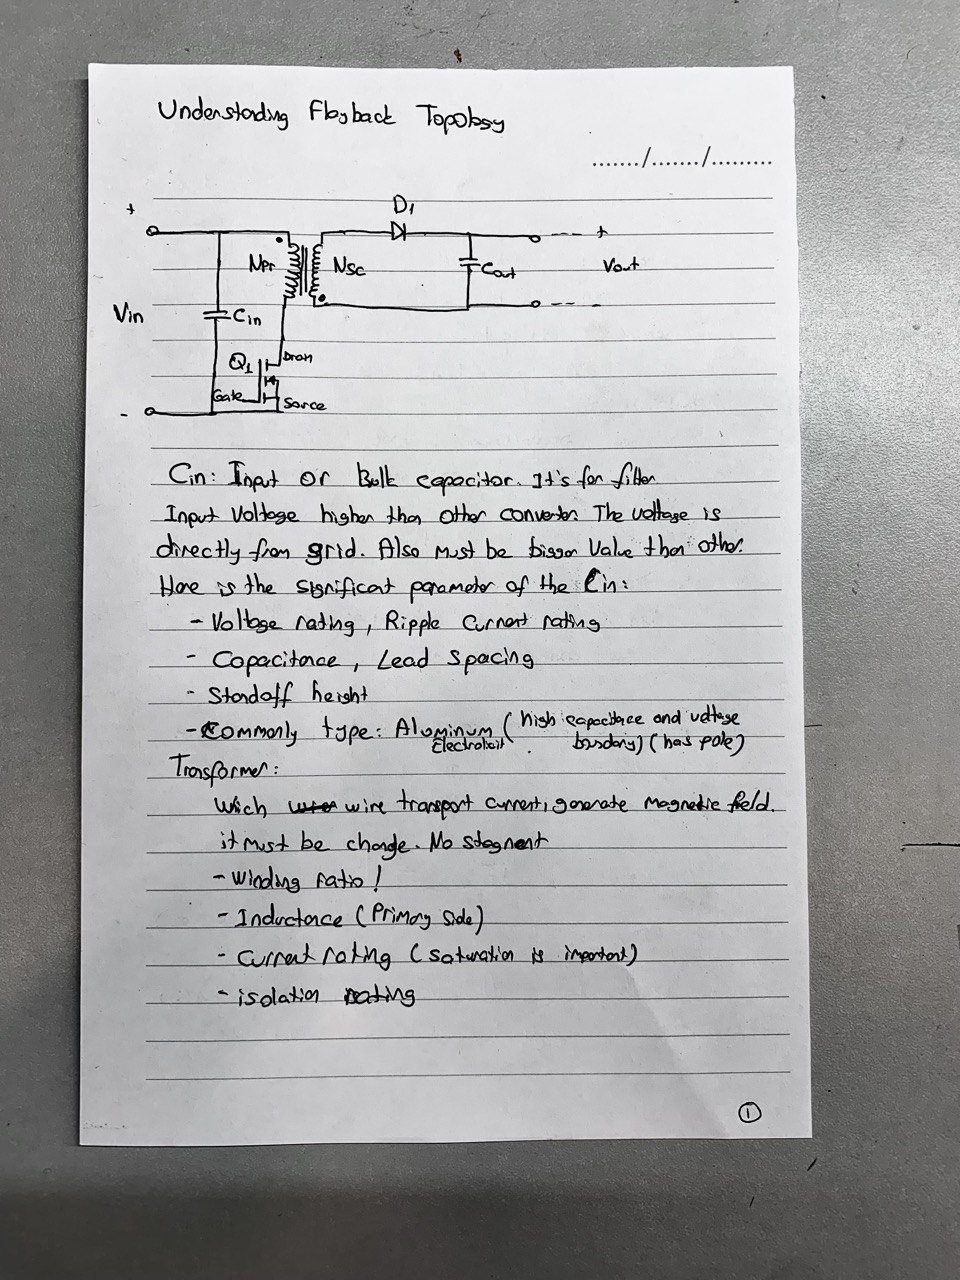 Understanding Flayback Topology
......./......./.........
+
D1
+
Npr
Nsc
Cout
Vout
Vin
Cin
-
Q1
Dran
Gate
Source
-
Cin: Input or Bulk capacitor. It's for filter
Input Voltage higher than other converter. The voltage is
directly from grid. Also must be bigger Value than other.
Here is the significant parameter of the Cin:
- Voltage rating, Ripple Current rating
- Capacitance, Lead spacing
- Standoff height
- Commonly type: Aluminum (high capacitace and voltage
Electrolixit boundary) (has pole)
Transformer:
Wich wire transport current, generate magnetic field.
it must be change. No stagnent
- Winding ratio!
- Inductance (Primary Side)
- Current rating (saturation is important)
- isolation rating
1